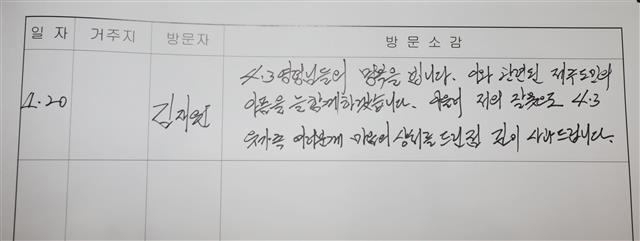 일 자 거주지 방문자 방 문 소 감
4.20 김재원 4.3영령님들의 명복을 빕니다. 이와 관련된 제주도민의
아픔을 늘 함께하겠습니다. 아울러 저의 잘못으로 4.3
유가족 여러분께 마음의 상처를 드린점 깊이 사과드립니다.